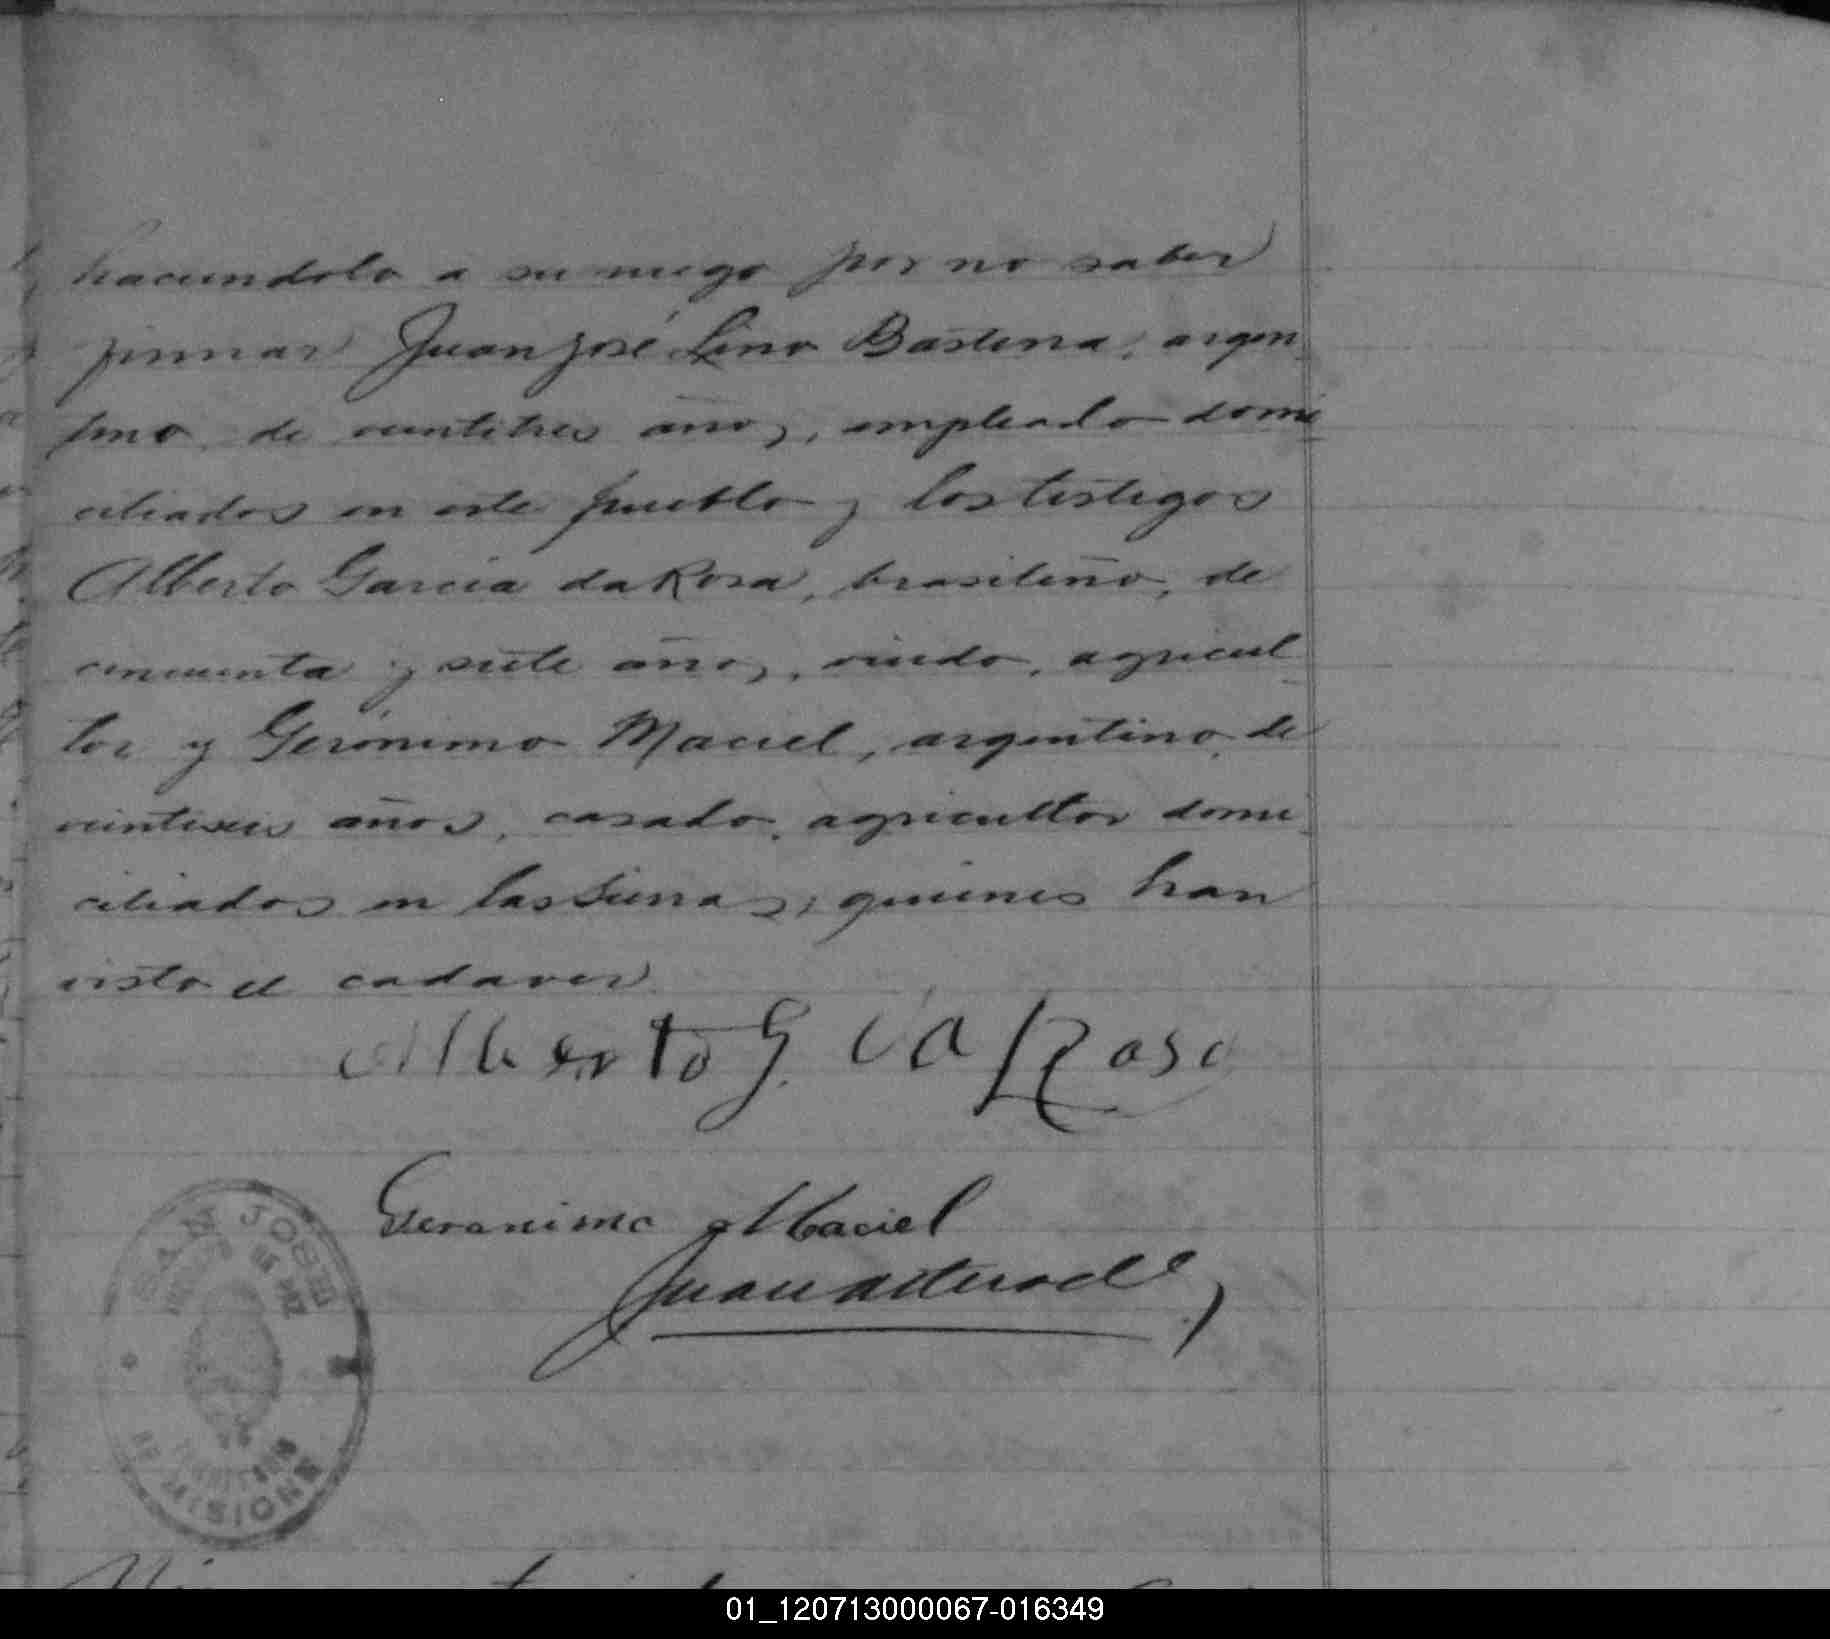 haciendolo a su ruego por no saber
firmar Juan José Lino Basterra, argen-
tino, de veintitres años, empleado domi-
ciliados en este pueblo y los testigos
Alberto Garcia da Rosa, brasileño, de
cincuenta y siete años, viudo, agricul-
tor y Gerónimo Maciel, argentino, de
veintiseis años, casado, agricultor domi-
ciliados en las Sierras; quienes han
visto el cadaver
Alberto G. da Rosa
Geronimo Maciel
SAN JOSE
JUZGADO DE PAZ
DE MISIONES
01_120713000067-016349